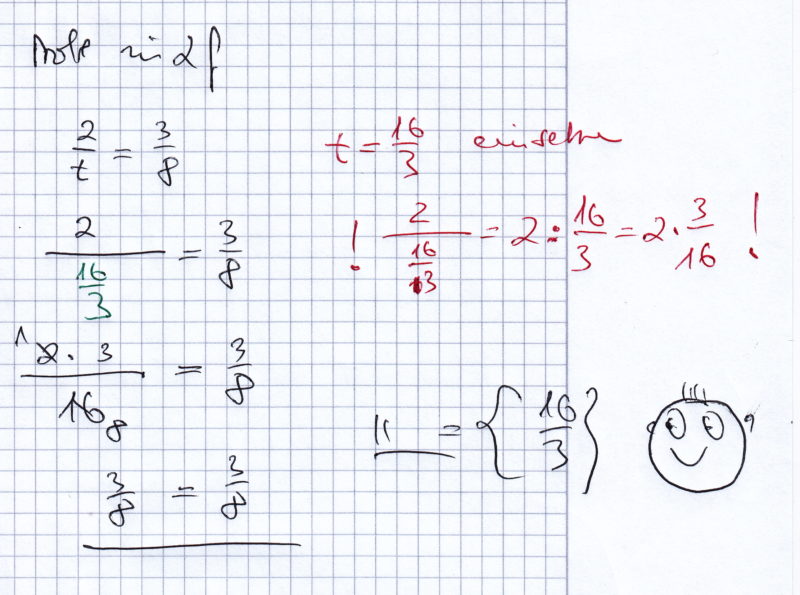 Probe in 2f
2/t = 3/8
t = 16/3 einsetzen
2/(16/3) = 3/8
! 2/(16/3) = 2 : 16/3 = 2 · 3/16 !
1 2 · 3 / 16 8 = 3/8
𝕃 = { 16/3 }
3/8 = 3/8